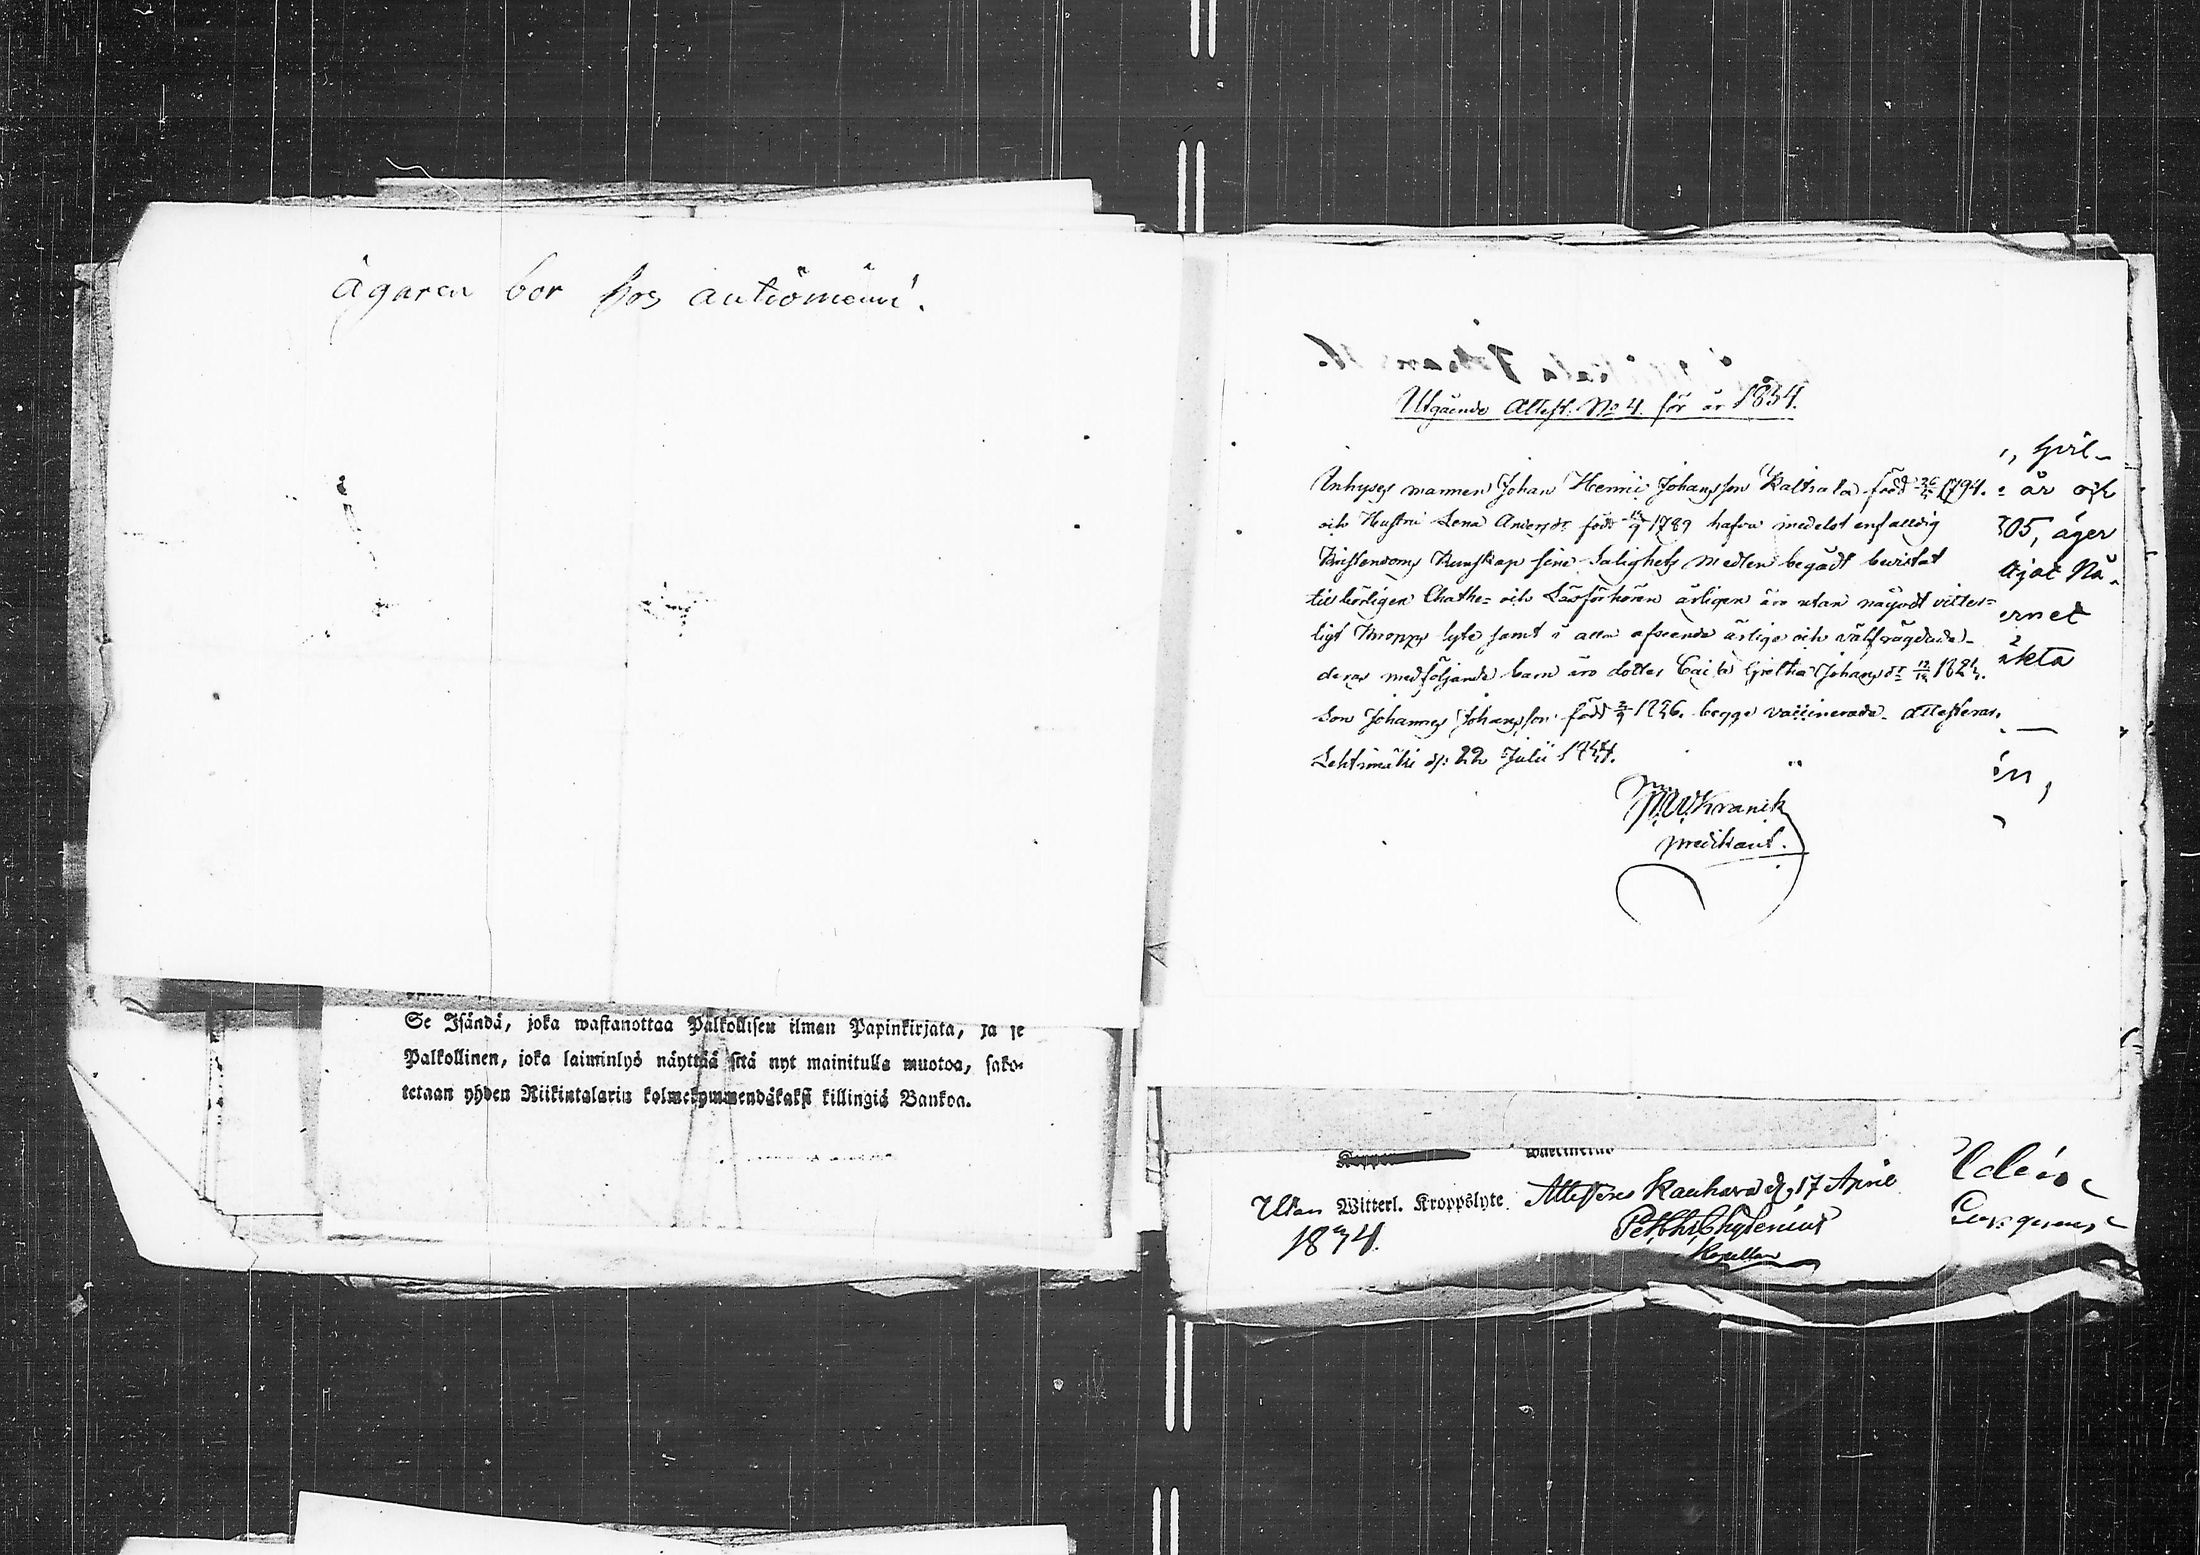 Ägaren bor hos Antiömäni.
Se Isändä, joka wastanottaa Palkollisen ilman Papinkirjata, ja se
Palkollinen, joka laiminlyö näyttää sitä nyt mainitulla muotoa, sako-
tetaan yhden Riikintalarin kolmekymmendäkaksi killingiä Bankoa.
Utgående Attest. No 4. för år 1834.
Inhyses mannen Johan Henric Johansson Kaltiala född 26/ 1794.
och Hustru Lena Andersdr född 1789 hafva medelst enfaldig
Kristendoms Kunskap sine Salighets medlen begådt bevistat
tillbörligen Cathe- och Läsförhören årligen äro utan någodt vitter-
ligt Kropps lyte samt i alla afseende ärlige och välfrägdade
deras medföljande barn äro dotter Caisa Greta Johansdr
Son Johannes Johansson född 1826. begge vaccinerade. Attesteras.
Lehtimäki d: 22 Julii 1834.
Kranck
predikant.
, Gift
år och
305, äger
ernet
äkta
Utan Witterl. Kroppslyte. Attesteras Kauhava d. 17 April
1834.
Chydenius
Kapellan